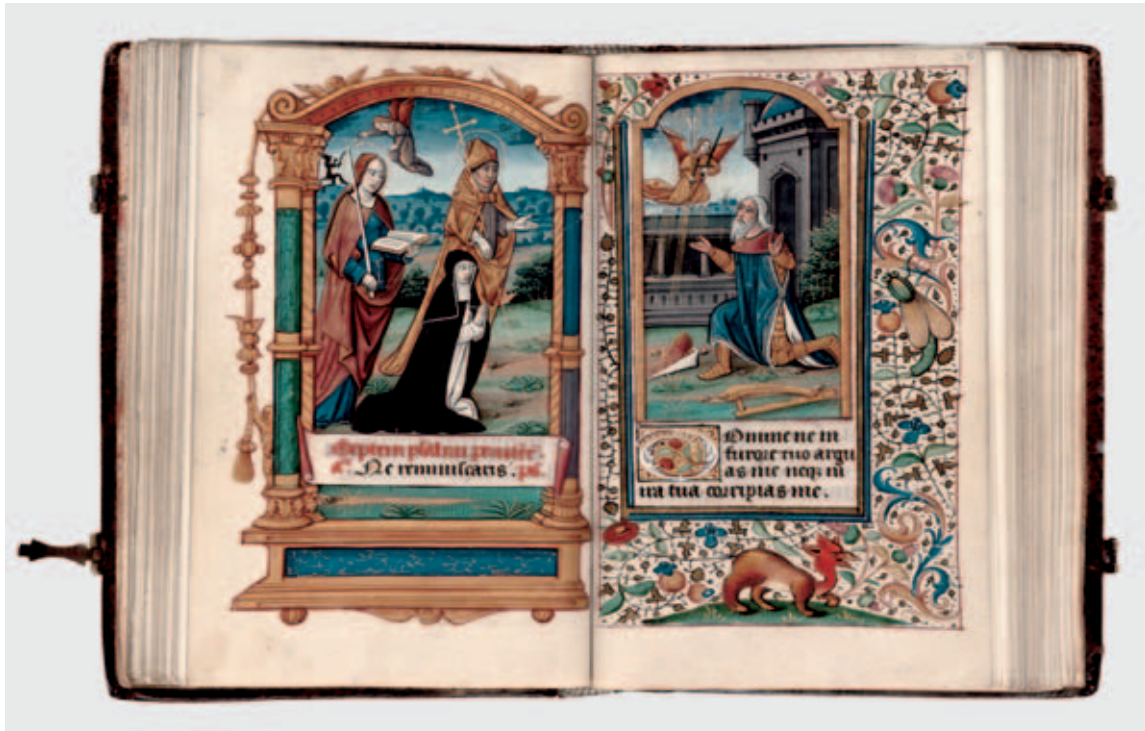 Septem psalmi
Ne reminiscaris. ps
DOmine ne in
furore tuo argu
as me neqꝫ in
ira tua corripias me.